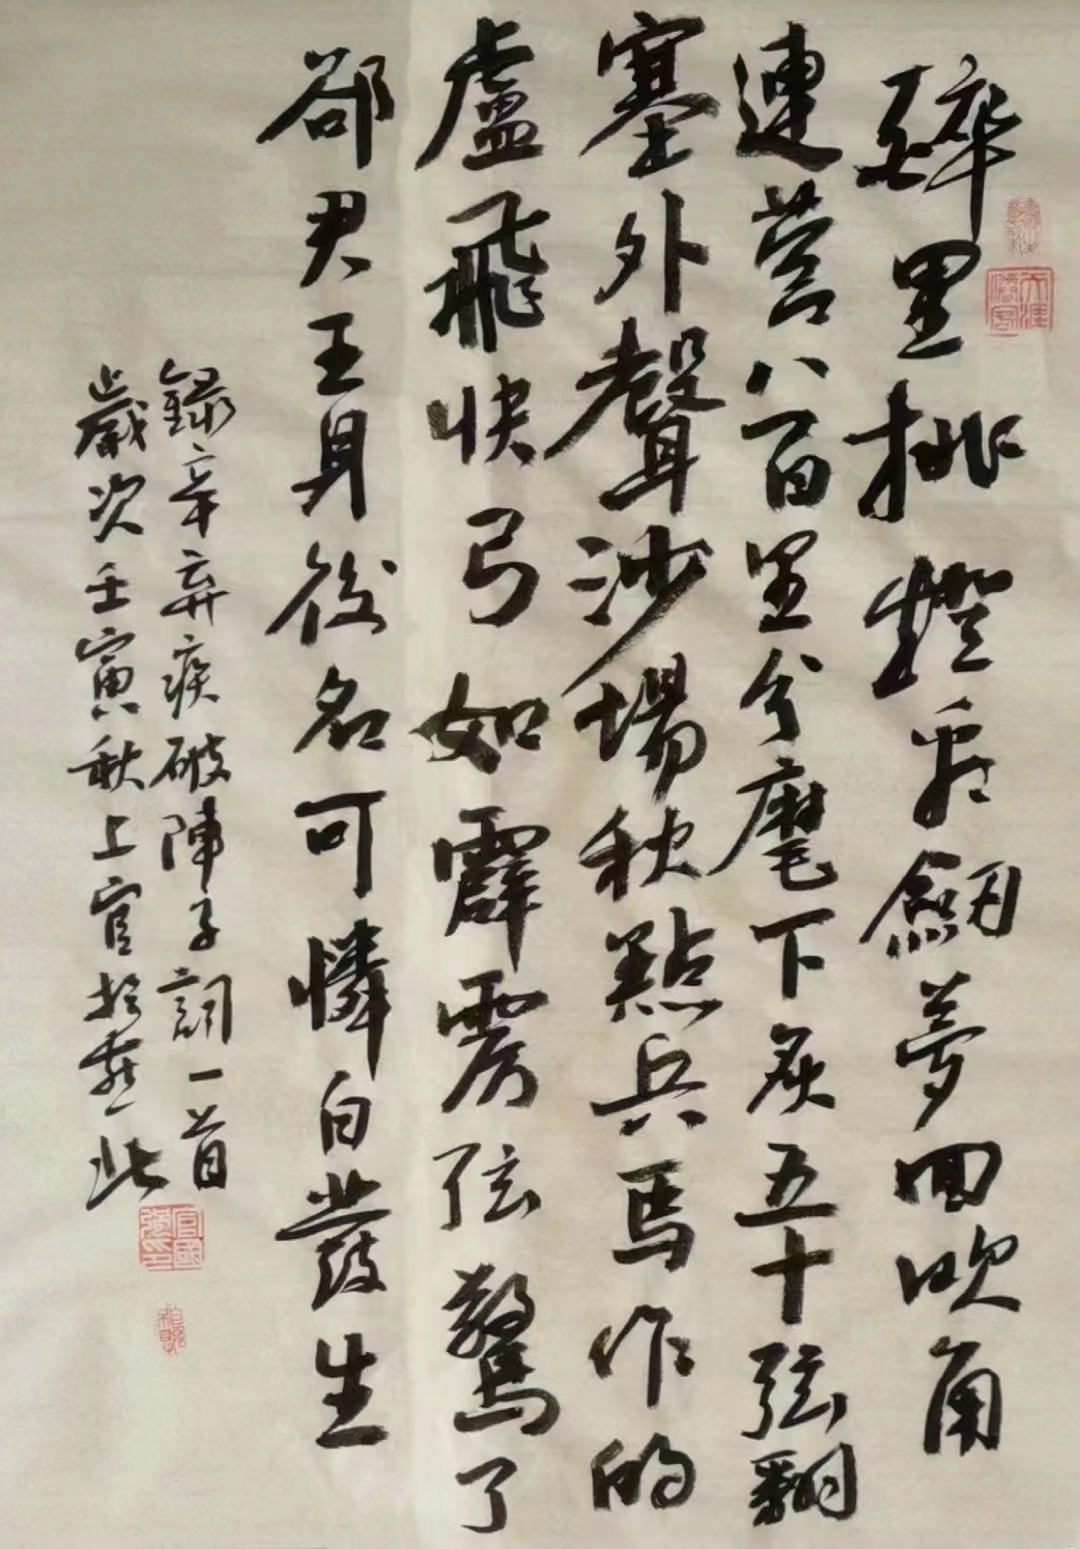 醉里挑燈看劔夢回吹角
連营八百里分麾下炙五十弦翻
塞外聲沙場秋點兵馬作的
盧飛快弓如霹雳弦驚了
郤君王身後名可憐白髮生
録辛弃疾破陣子詞一首
歲次壬寅秋上官於燕北
天涯
官國